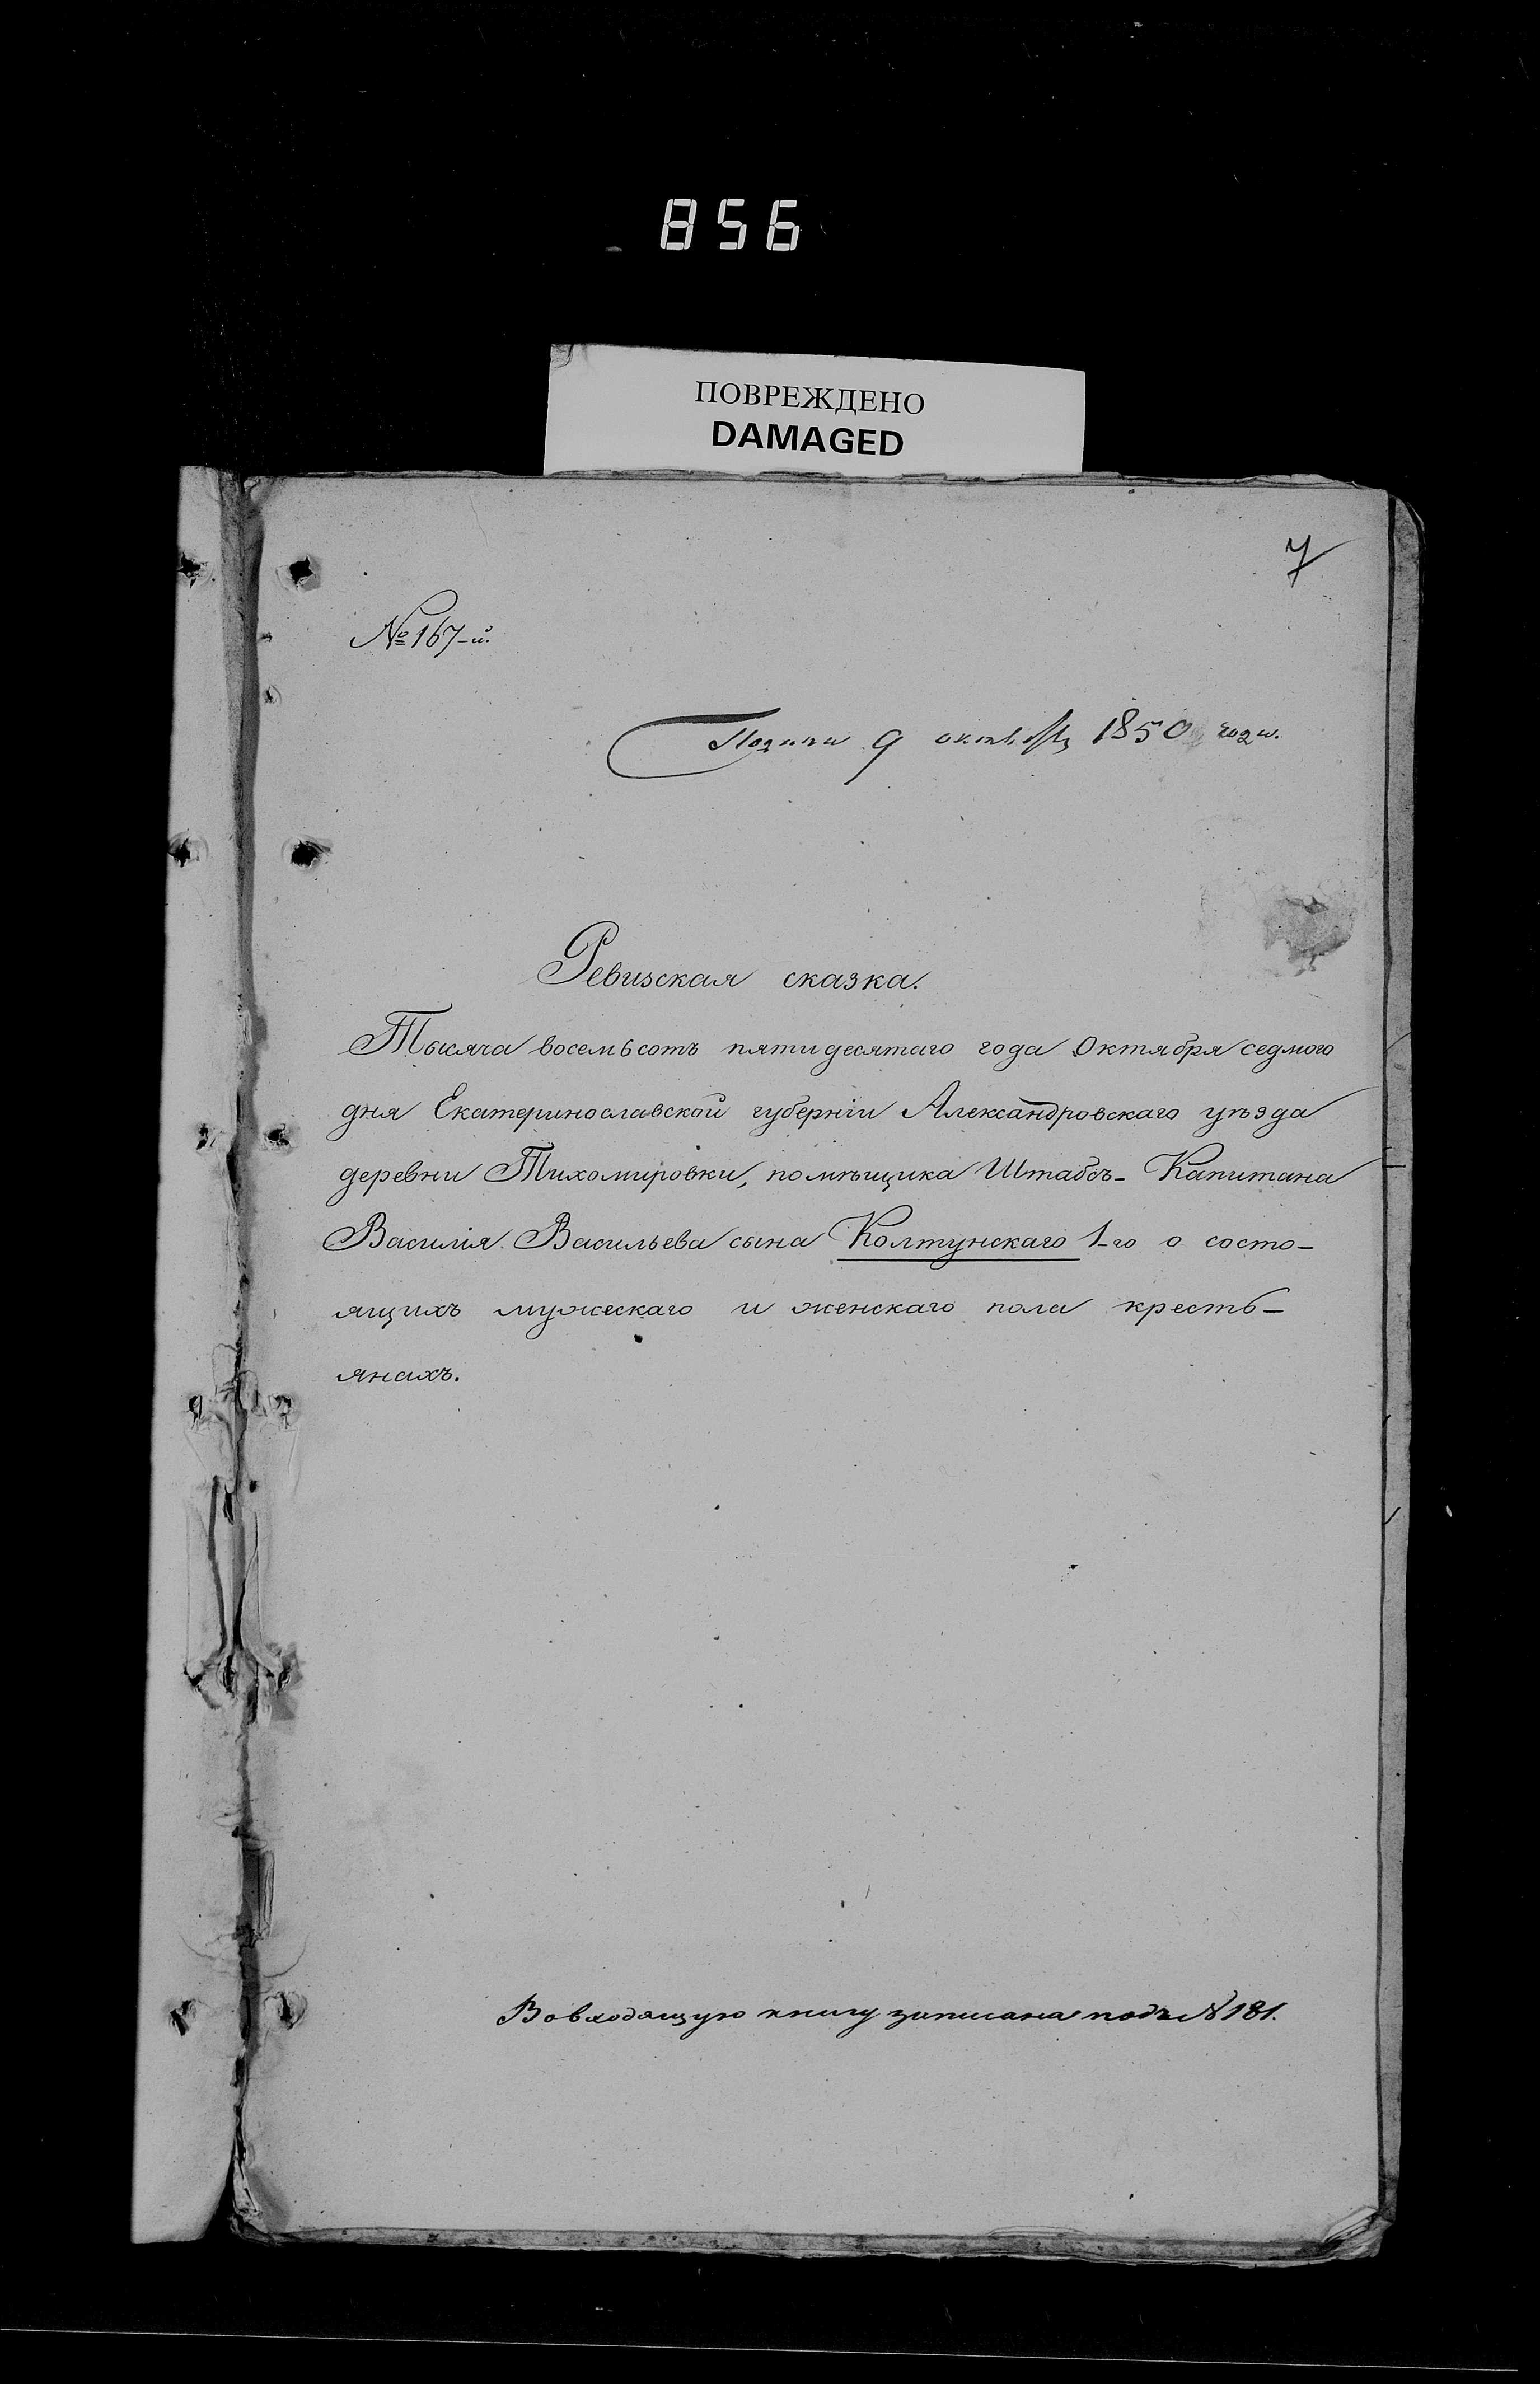 856
ПОВРЕЖДЕНО
DAMAGED
7
№ 167-й.
9 октября 1850 года.
Ревизская сказка.
Тысяча восемьсотъ пятидесятаго года Октября седмого
дня Екатеринославской губерніи Александровскаго уѣзда
деревни Тихомировки, помѣщика Штабсъ- Капитана
Василія Васильева сына Колтунскаго 1-го о состо-
ящихъ мужескаго и женскаго пола кресть-
янахъ.
Во входящую книгу записана подъ № 181.